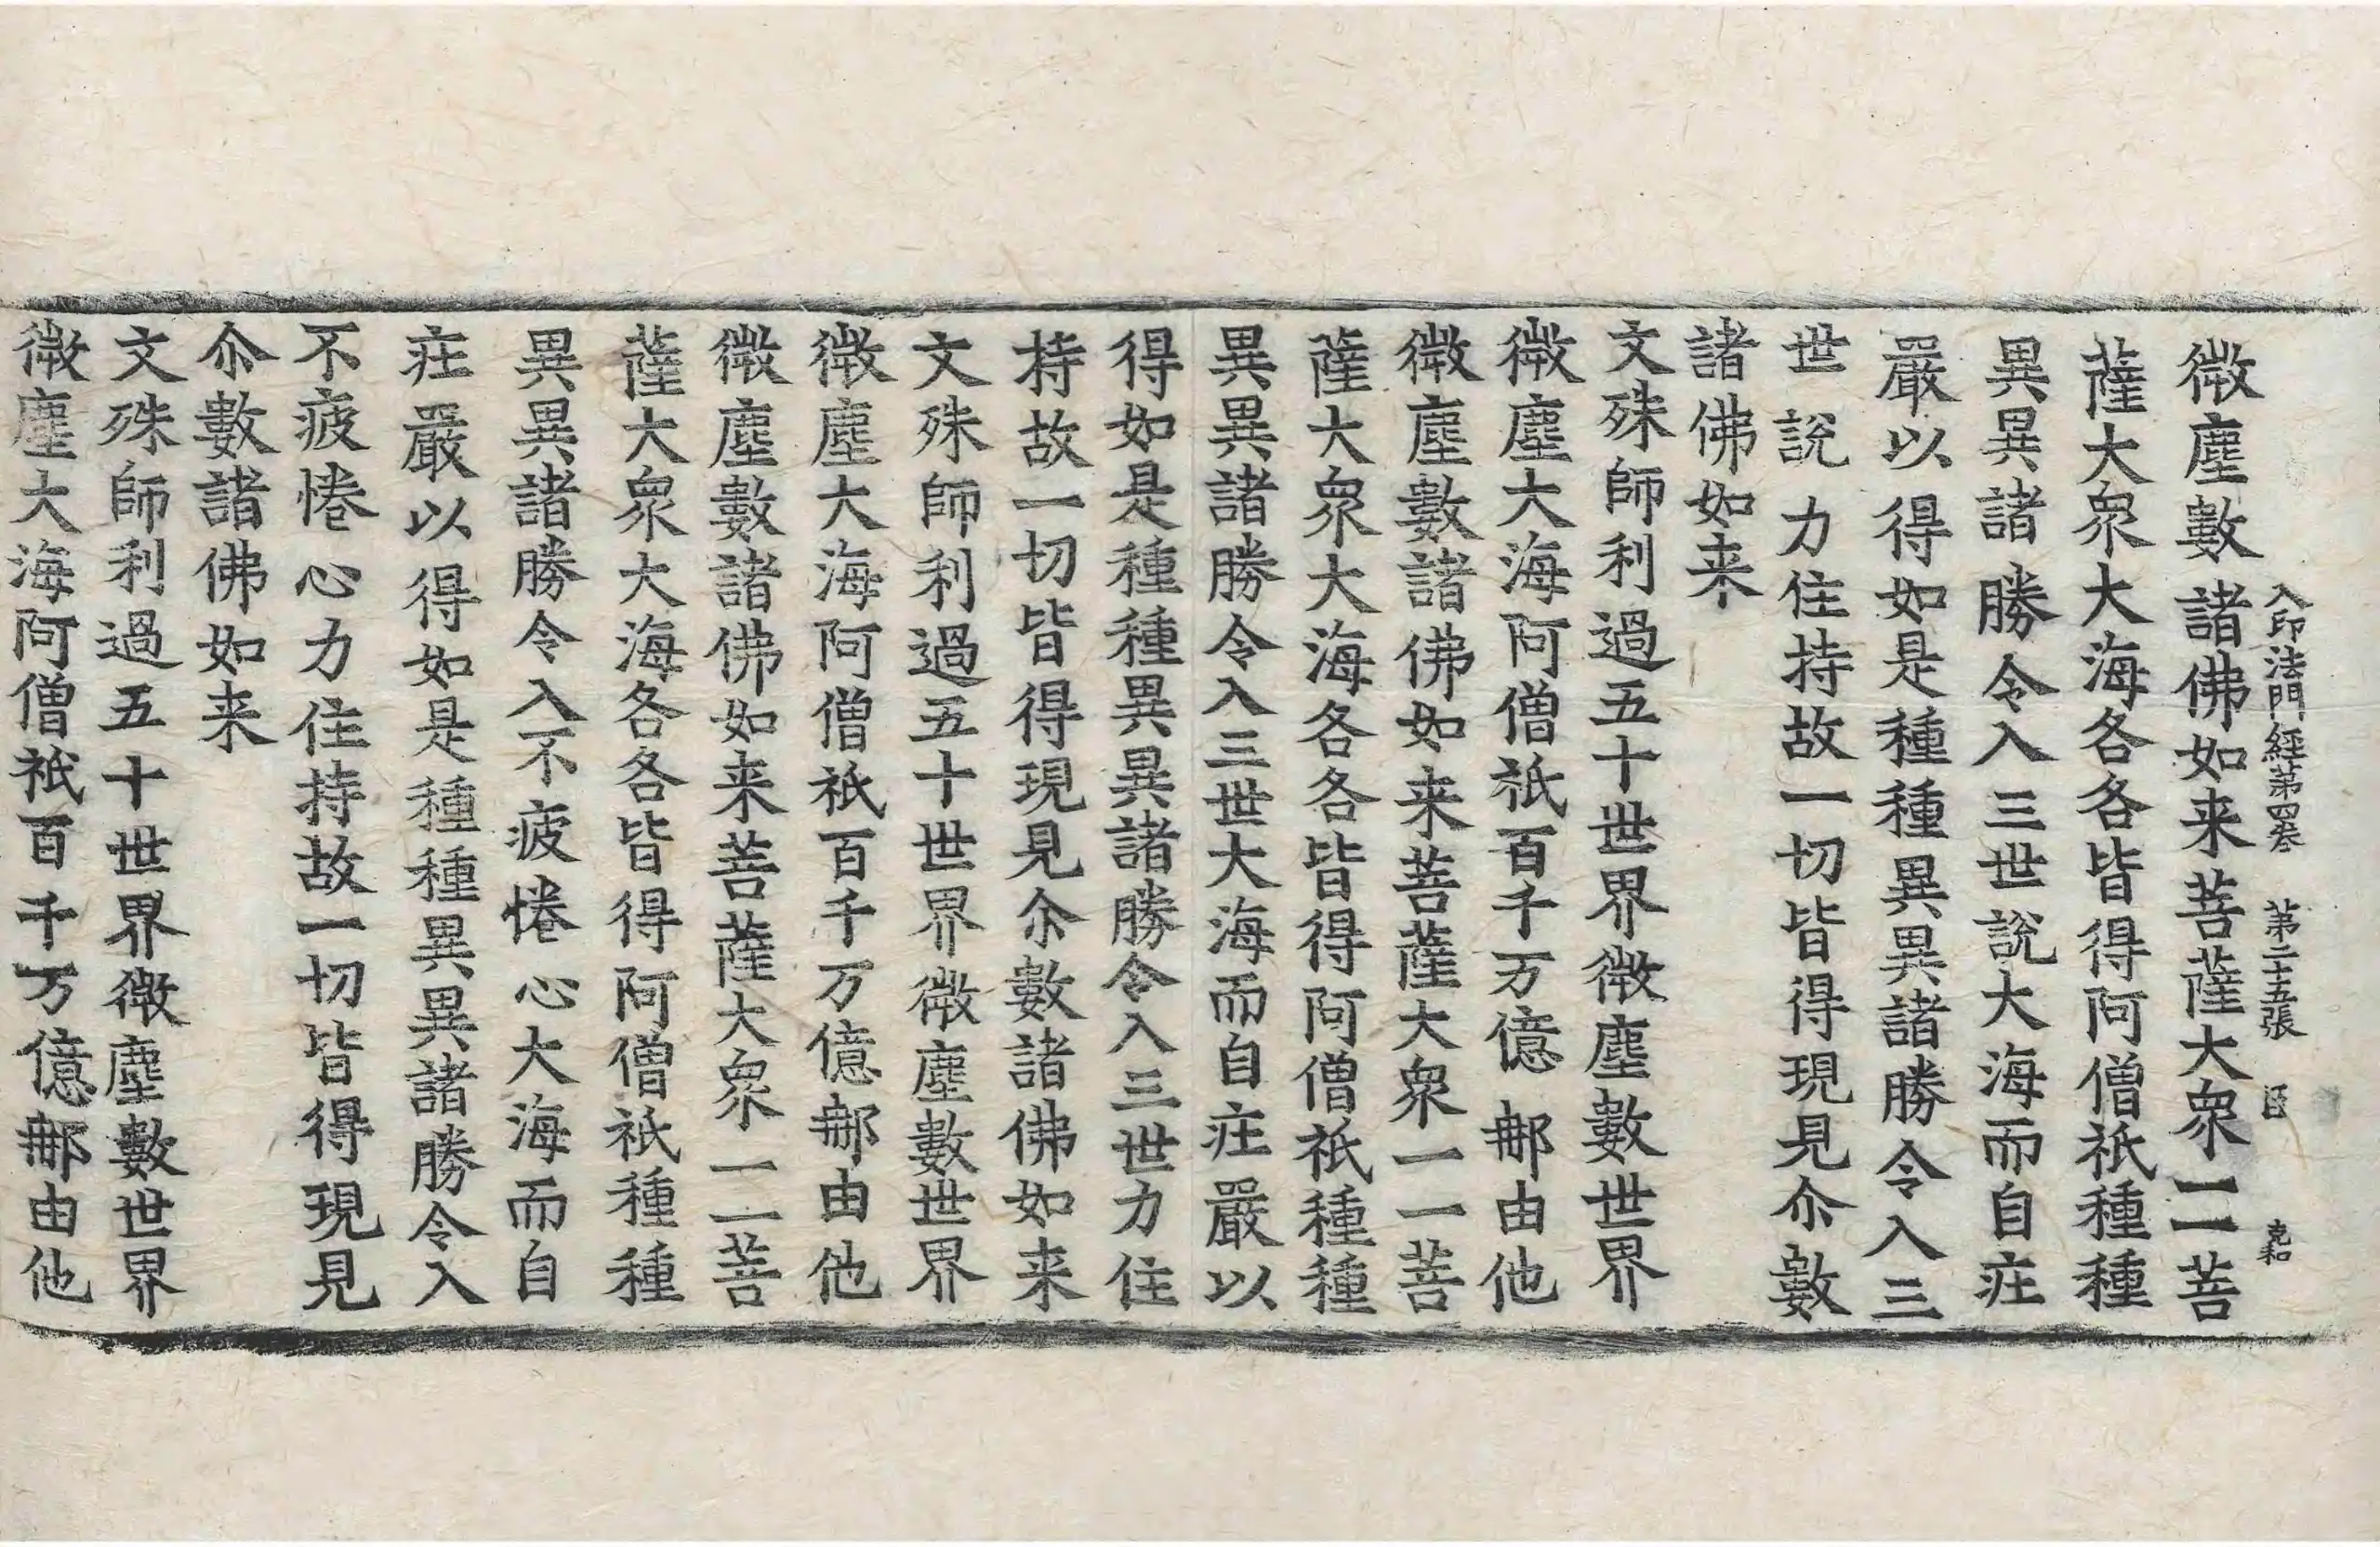 入印法門經第四卷 第二十五張 克和
微塵數諸佛如来菩薩大衆一一菩
薩大衆大海各各皆得阿僧祇種種
異異諸勝令入三世說大海而自莊
嚴以得如是種種異異諸勝令入三
世說力住持故一切皆得現見尒數
諸佛如来
文殊師利過五十世界微塵數世界
微塵大海阿僧祇百千万億䣀由他
微塵數諸佛如来菩薩大衆一一菩
薩大衆大海各各皆得阿僧祇種種
異異諸勝令入三世大海而自莊嚴以
得如是種種異異諸勝令入三世力住
持故一切皆得現見尒數諸佛如来
文殊師利過五十世界微塵數世界
微塵大海阿僧祇百千万億䣀由他
微塵數諸佛如来菩薩大衆一一菩
薩大衆大海各各皆得阿僧祇種種
異異諸勝令入不疲惓心大海而自
莊嚴以得如是種種異異諸勝令入
不疲惓心力住持故一切皆得現見
尒數諸佛如来
文殊師利過五十世界微塵數世界
微塵大海阿僧祇百千万億䣀由他